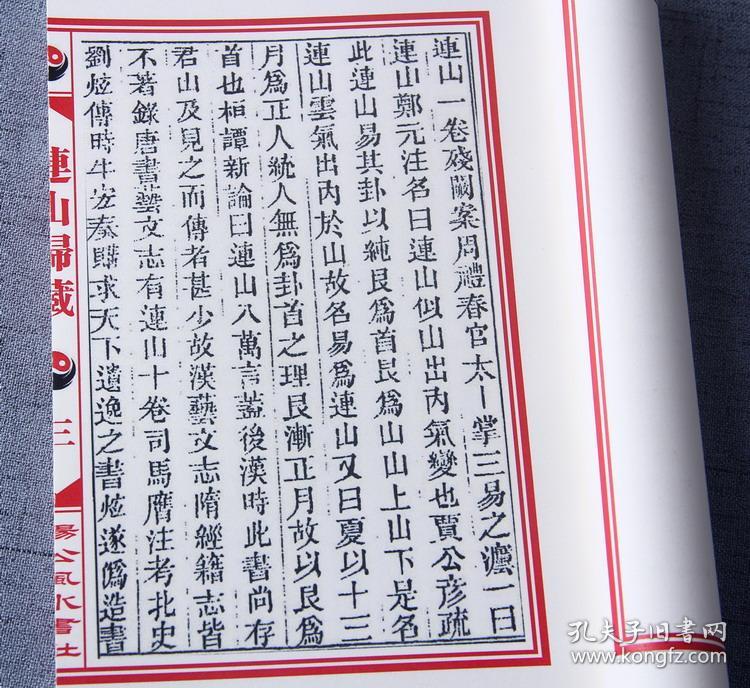 連山一卷殘闕案周禮春官太卜掌三易之灋一曰
連山鄭元注名曰連山似山出內氣變也賈公彥疏
此連山易其卦以純艮爲首艮爲山山上山下是名
連山雲氣出內於山故名易爲連山又曰夏以十三
月爲正人統人無爲卦首之理艮漸正月故以艮爲
首也桓譚新論曰連山八萬言蓋後漢時此書尚存
君山及見之而傳者甚少故漢藝文志隋經籍志皆
不著錄唐書藝文志有連山十卷司馬膺注考北史
劉炫傳時牛宏奏購求天下遺逸之書炫遂僞造書
連山歸藏
三
楊公風水書社
孔夫子旧书网
www.kongfz.com